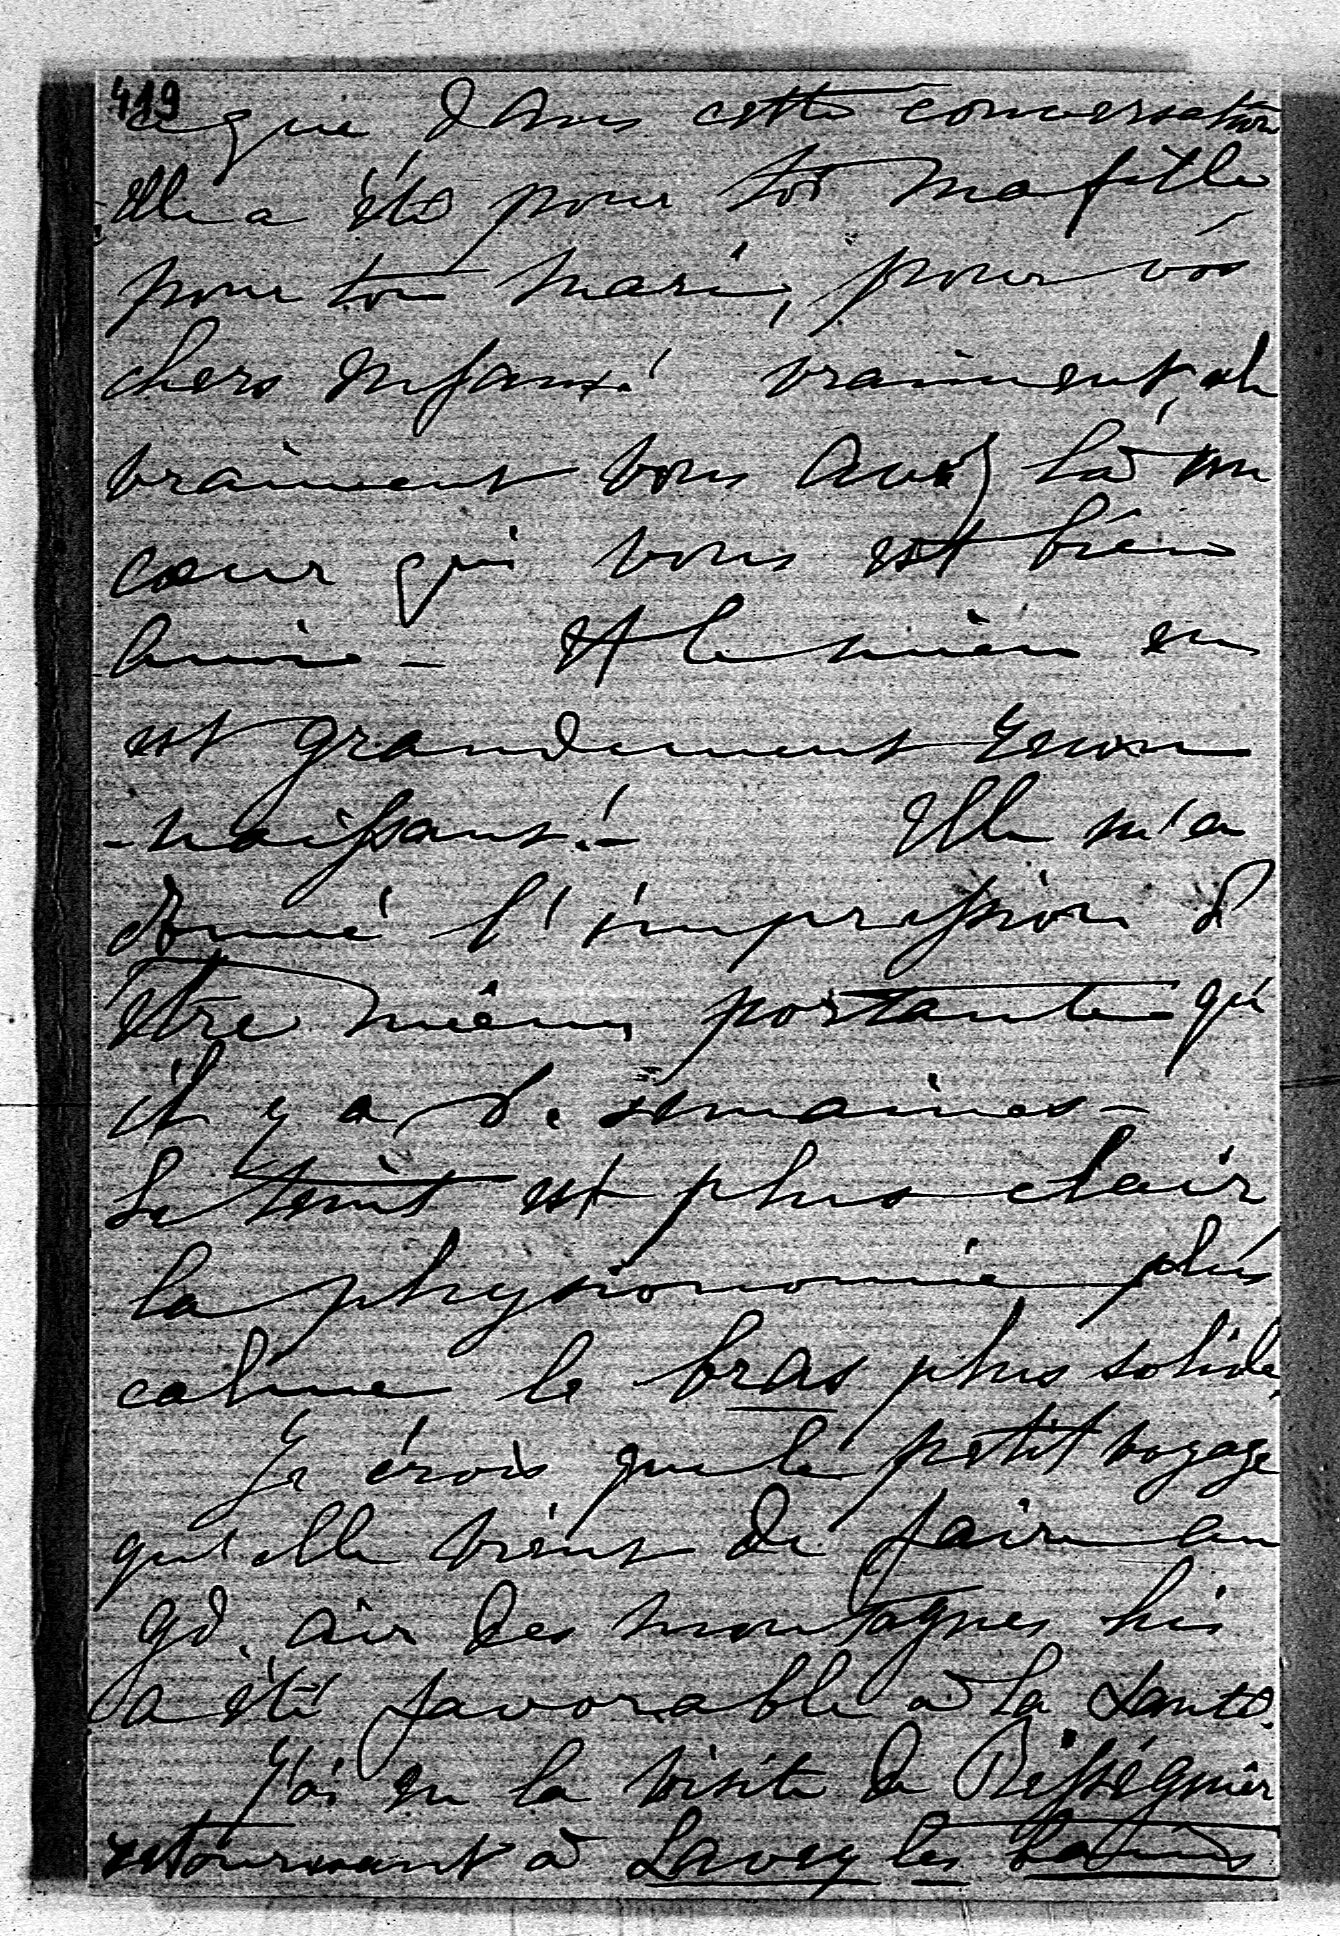 419
ce que dans cette conversation
Elle a été pour toi ma fille
pour ton mari, pour vos
chers enfants! vraiment, oh
vraiment vous avez là un
cœur qui vous est bien
Et le mien en
est grandement recon
-naissant!-  Elle m'a
donné l'impression d'
être mieux portante qu'
il y a 8. semaines-
Le teint est plus clair
la physionomie plus
calme le bras plus solide,
Je crois que le petit voyage
qu'elle vient de faire au
gd. air des montagnes lui
a été favorable à la santé.
J'ai eu la visite de Rességuier
retournant à Lavey les bains